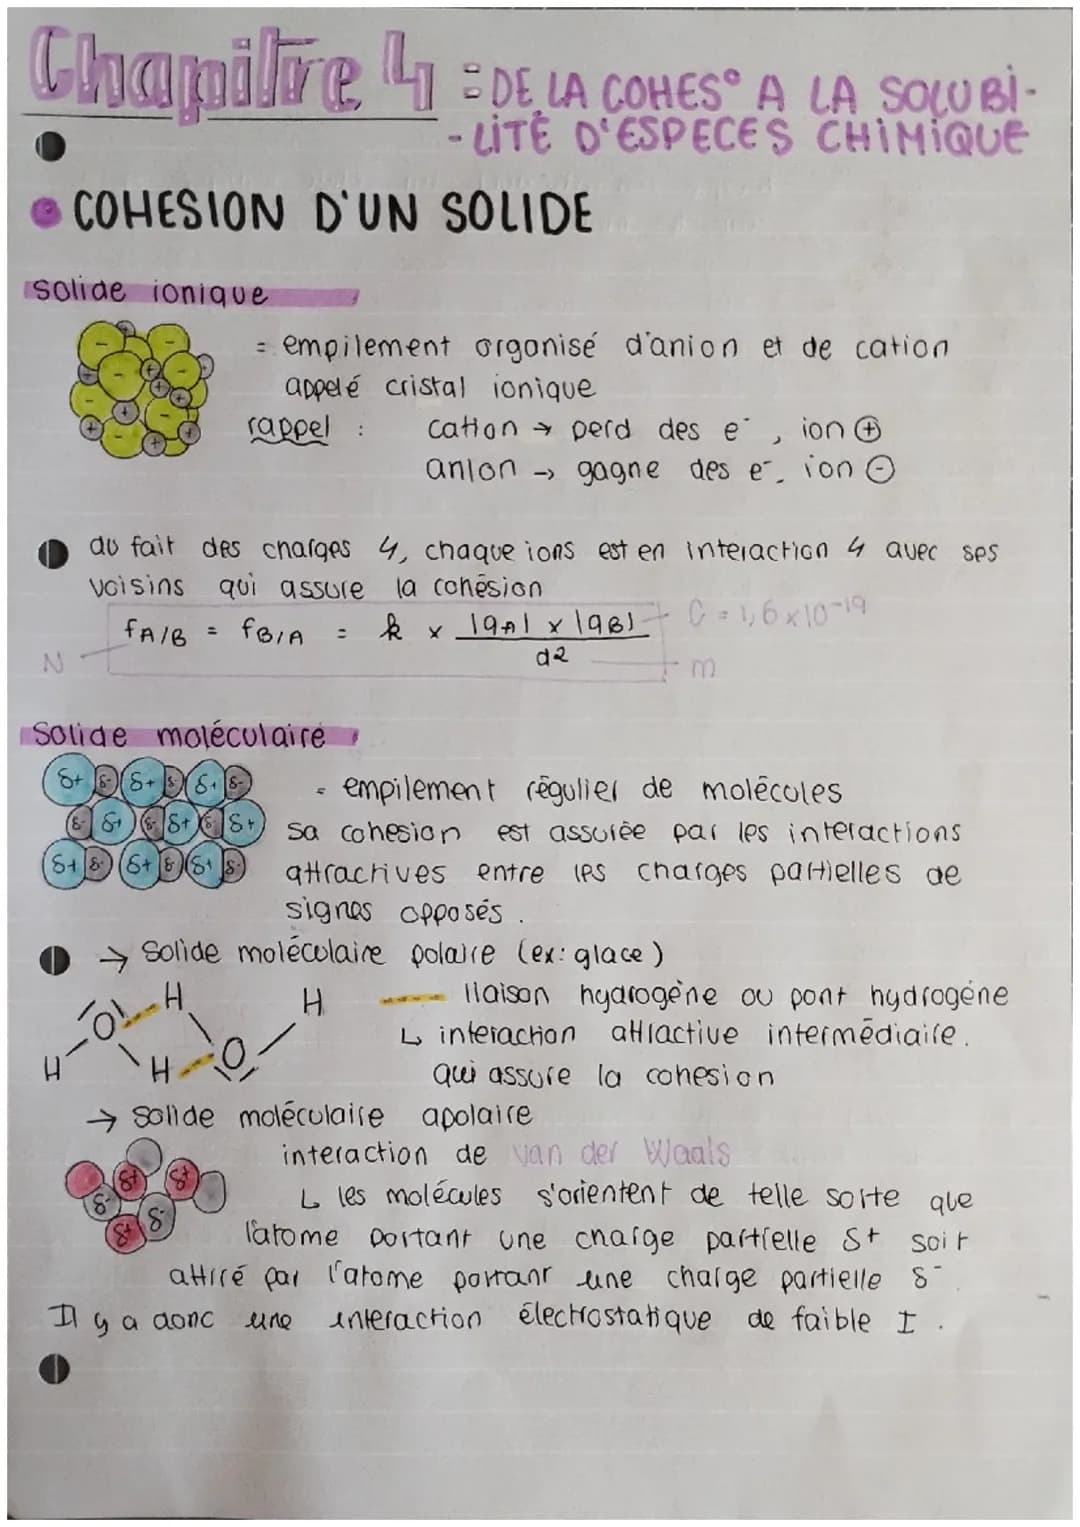 Chapitre 4 : DE LA COHES° A LA SOLUBI-
-LITÉ D'ESPECES CHIMIQUE
COHESION D'UN SOLIDE
solide ionique
= empilement organisé d'anion et de cation
appelé cristal ionique
rappel : cation → perd des e⁻, ion ⊕
anion → gagne des e⁻, ion ⊖
du fait des charges ϟ, chaque ions est en interaction ϟ avec ses
voisins qui assure la cohésion
fA/B = fB/A = k × |qA| × |qB| C = 1,6×10⁻¹⁹
d²
N m
Solide moléculaire
δ+ δ- δ+ δ- δ+ δ-
δ- δ+ δ- δ+ δ- δ+
δ+ δ- δ+ δ- δ+ δ-
= empilement régulier de molécules
sa cohesion est assurée par les interactions
attractives entre les charges partielles de
signes opposés.
→ Solide moléculaire polaire (ex: glace)
H H
O
H H O
liaison hydrogène ou pont hydrogéne
↳ interaction attractive intermédiaire.
qui assure la cohesion
→ Solide moléculaire apolaire
interaction de van der Waals
↳ les molécules s'orientent de telle sorte que
l'atome portant une charge partielle δ+ soit
attiré par l'atome portant une charge partielle δ⁻
Il y a donc une interaction électrostatique de faible I.
δ+ δ+
δ-
δ+ δ-